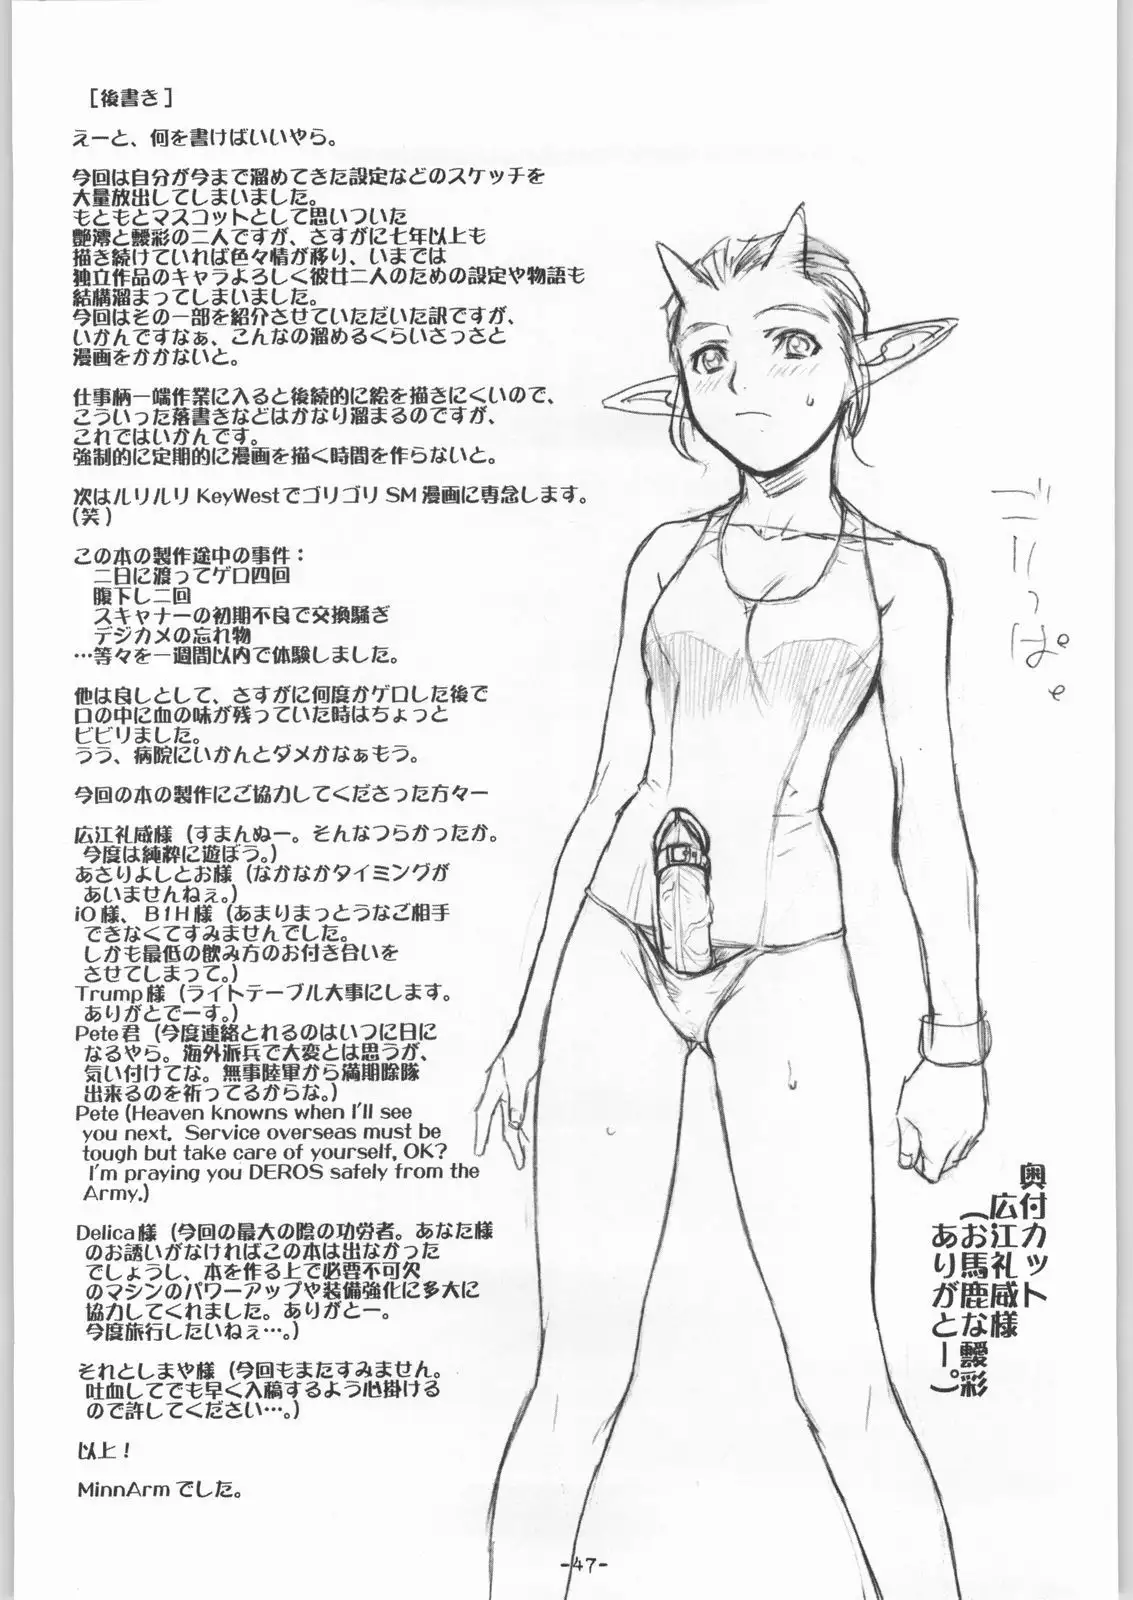 ［後書き］
えーと、何を書けばいいやら。
今回は自分が今まで溜めてきた設定などのスケッチを
大量放出してしまいました。
もともとマスコットとして思いついた
艶澪と靉彩の二人ですが、さすがに七年以上も
描き続けていれば色々情が移り、いまでは
独立作品のキャラよろしく彼女二人のための設定や物語も
結構溜まってしまいました。
今回はその一部を紹介させていただいた訳ですが、
いかんですなぁ、こんなの溜めるくらいさっさと
漫画をかかないと。
仕事柄一端作業に入ると後続的に絵を描きにくいので、
こういった落書きなどはかなり溜まるのですが、
これではいかんです。
強制的に定期的に漫画を描く時間を作らないと。
次はルリルリKeyWestでゴリゴリSM漫画に専念します。
（笑）
この本の製作途中の事件：
二日に渡ってゲロ四回
腹下し二回
スキャナーの初期不良で交換騒ぎ
デジカメの忘れ物
…等々を一週間以内で体験しました。
他は良しとして、さすがに何度かゲロした後で
口の中に血の味が残っていた時はちょっと
ビビリました。
うう、病院にいかんとダメかなぁもう。
今回の本の製作にご協力してくださった方々ー
広江礼威様（すまんぬー。そんなつらかったか。
今度は純粋に遊ぼう。）
あさりよしとお様（なかなかタイミングが
あいませんねぇ。）
iO様、B1H様（あまりまっとうなご相手
できなくてすみませんでした。
しかも最低の飲み方のお付き合いを
させてしまって。）
Trump様（ライトテーブル大事にします。
ありがとでーす。）
Pete君（今度連絡とれるのはいつに日に
なるやら。海外派兵で大変とは思うが、
気い付けてな。無事陸軍から満期除隊
出来るのを祈ってるからな。）
Pete (Heaven knowns when I'll see
you next. Service overseas must be
tough but take care of yourself, OK?
I'm praying you DEROS safely from the
Army.)
Delica様（今回の最大の陰の功労者。あなた様
のお誘いがなければこの本は出なかった
でしょうし、本を作る上で必要不可欠
のマシンのパワーアップや装備強化に多大に
協力してくれました。ありがとー。
今度旅行したいねぇ…。）
それとしまや様（今回もまたすみません。
吐血してでも早く入稿するよう心掛ける
ので許してください…。）
以上！
MinnArmでした。
ごりっぱ。
奥付カット
広江礼威様
（お馬鹿な靉彩
ありがとー。）
-47-